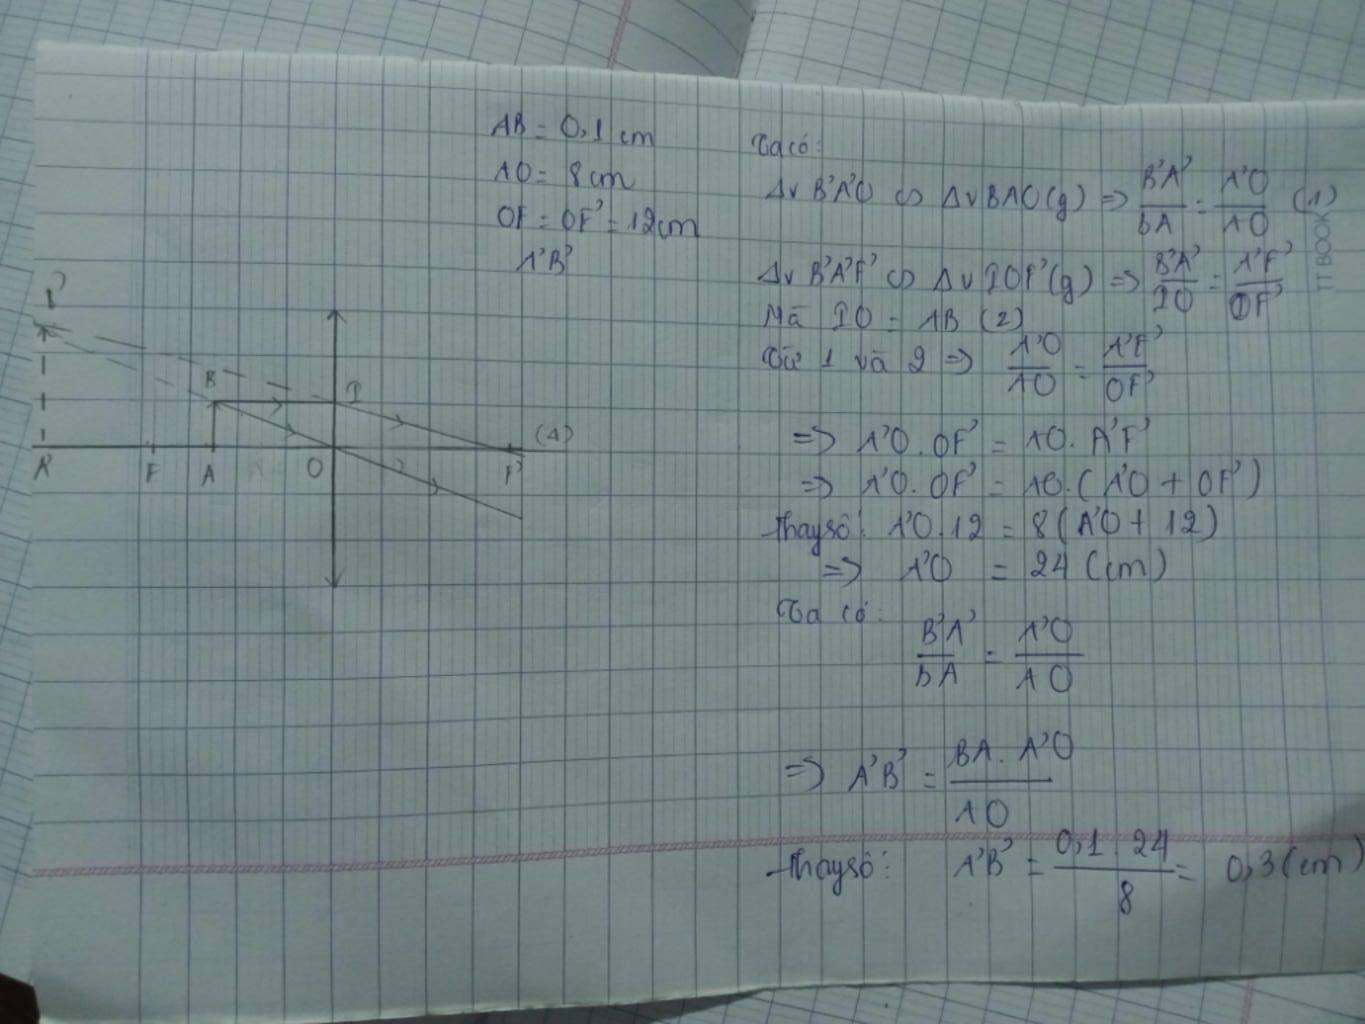 AB = 0,1 cm
AO = 8 cm
OF = OF' = 12 cm
A'B'
B'
B
I
(Δ)
A'
F
A
O
F'
Ta có:
Δv B'A'O ∽ Δv BAO (g) => B'A'/BA = A'O/AO (1)
Δv B'A'F' ∽ Δv IOF' (g) => B'A'/IO = A'F'/OF'
Mà IO = AB (2)
Từ 1 và 2 => A'O/AO = A'F'/OF'
=> A'O . OF' = AO . A'F'
=> A'O . OF' = AO . (A'O + OF')
Thay số: A'O . 12 = 8 (A'O + 12)
=> A'O = 24 (cm)
Ta có:
B'A'/BA = A'O/AO
=> A'B' = BA . A'O/AO
Thay số: A'B' = 0,1 . 24/8 = 0,3 (cm)
TT BOOK